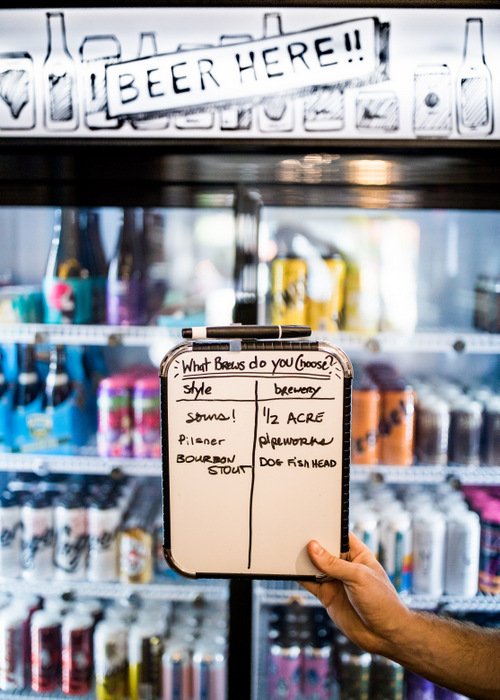 BEER HERE!!
What Brews do you Choose?
Style brewery
sours! 1/2 ACRE
Pilsner pipeworks
BOURBON STOUT DOG FISH HEAD